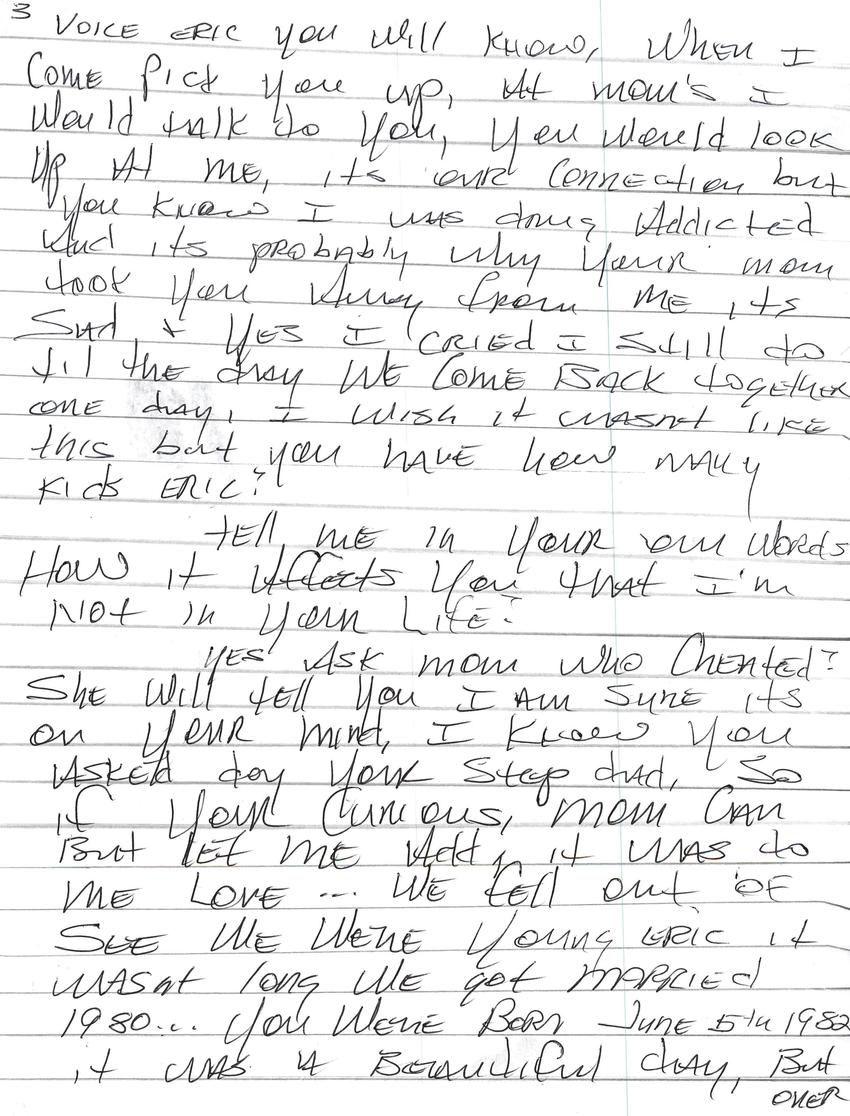 3
VOICE ERIC you will KNOW, WHEN I
COME Pick you up, At mom's I
Would talk to you, you would look
Up At ME, its our CONNECTION but
you know I was drug Addicted
And its probably why your mom
took you Away from ME its
SAd & YES I CRIED I still do
til the day WE COME BACK together
one day, I wish it wasnt like
this but you HAVE how MANY
Kids ERIC?
tell ME in your own words
How it Affects you that I'm
Not in your Life?
YES ASK mom who Cheated?
She Will tell you I AM SURE its
on your mind, I know you
ASKED day your Step dad, So
if your Curious, mom CAN
But LET ME Add, it WAS to
ME LOVE ... WE fell out OF
SEE WE WERE young ERIC it
wasnt long WE got MARRIED
1980... you WERE BORN JUNE 5th 1982
it was A BEAUtiful dAy, But
OVER